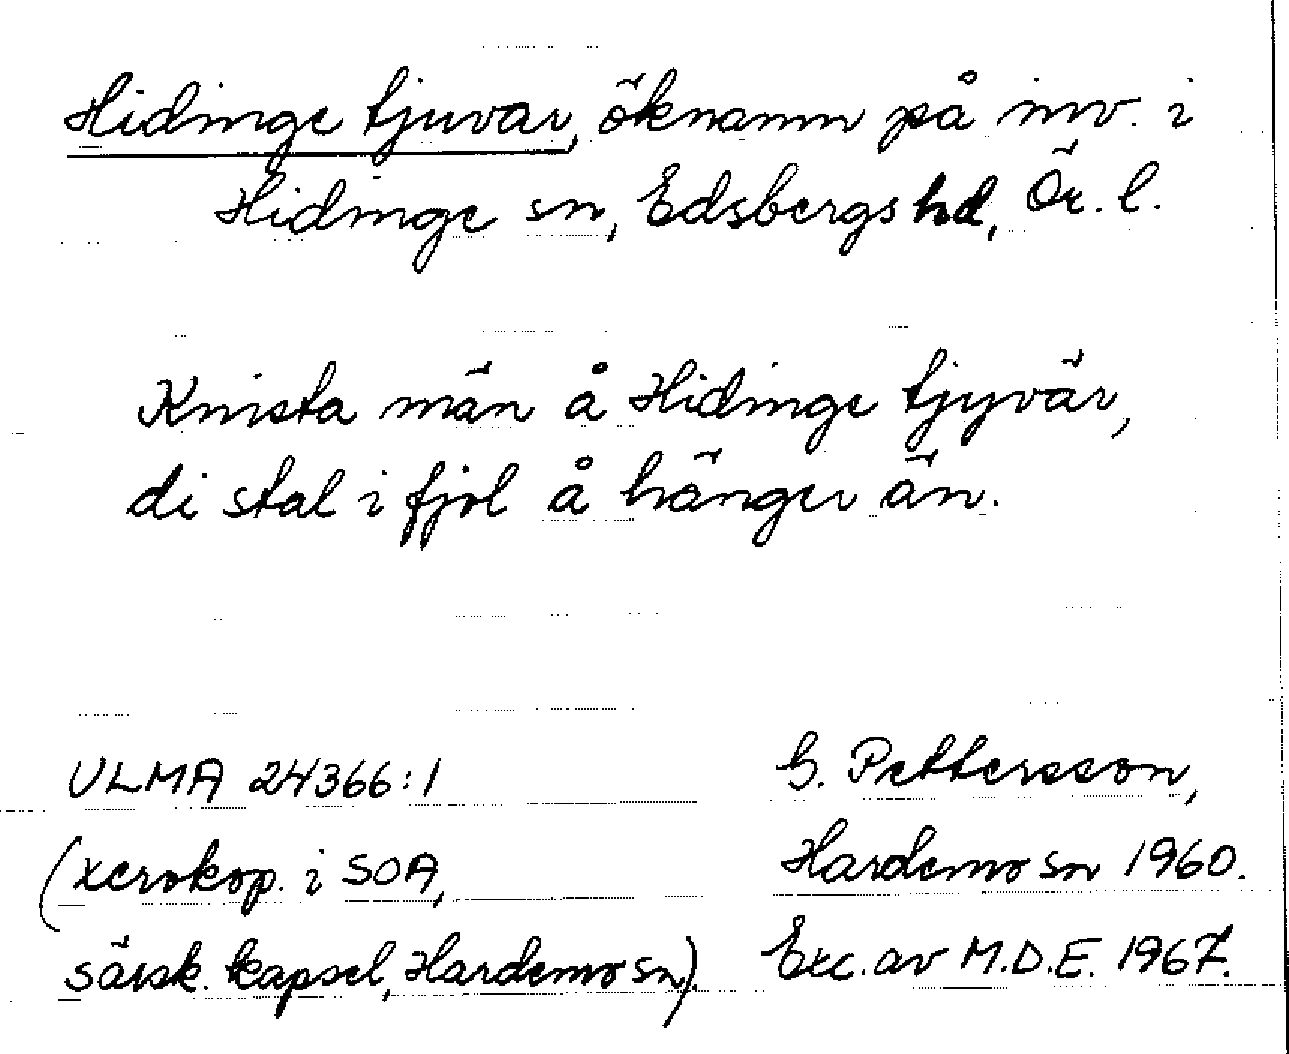 Hidinge tjuvar, öknamn på inv. i
Hidinge sn, Edsbergs hd, Ör. l.
Knista män å Hidinge tjyvär,
di stal i fjol å hänger än.
ULMA 24366:1
(xerokop. i SOA,
särsk. kapsel, Hardemo sn).
G. Pettersson,
Hardemo sn 1960.
Exc. av M.D.E. 1967.